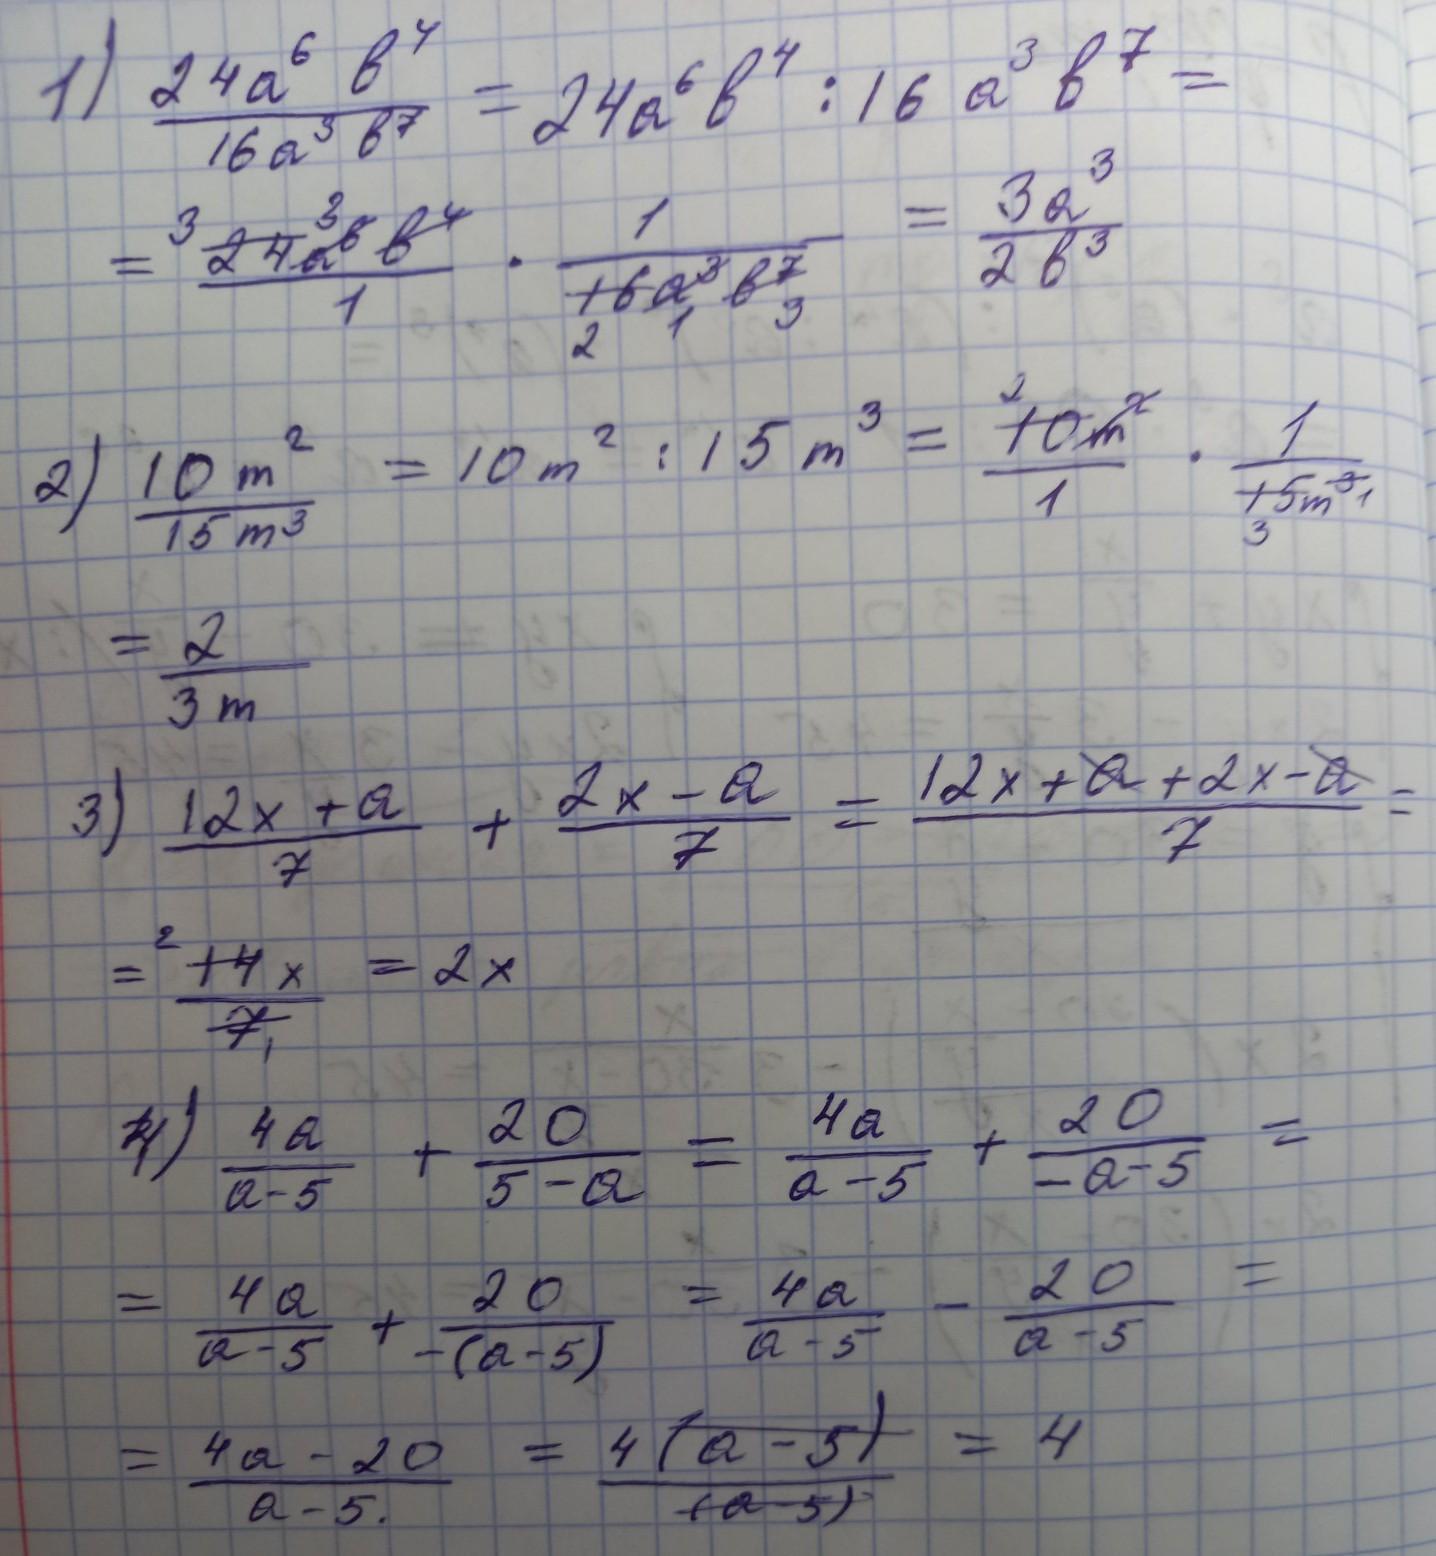 1) 24a⁶ b⁴ / 16a³ b⁷ = 24a⁶ b⁴ : 16 a³ b⁷ =
= ³ 24a⁶ ³ b⁴ / 1 · 1 / 16a³ b⁷ 2 1 3 = 3a³ / 2b³
2) 10 m² / 15 m³ = 10 m² : 15 m³ = ² 10m² / 1 · 1 / 15m³ 1 3
= 2 / 3 m
3) 12x + a / 7 + 2x - a / 7 = 12x + a + 2x - a / 7 =
= ² 14x / 7 1 = 2x
4) 4a / a-5 + 20 / 5-a = 4a / a-5 + 20 / -a-5 =
= 4a / a-5 + 20 / -(a-5) = 4a / a-5 - 20 / a-5 =
= 4a - 20 / a-5. = 4(a-5) / (a-5) = 4